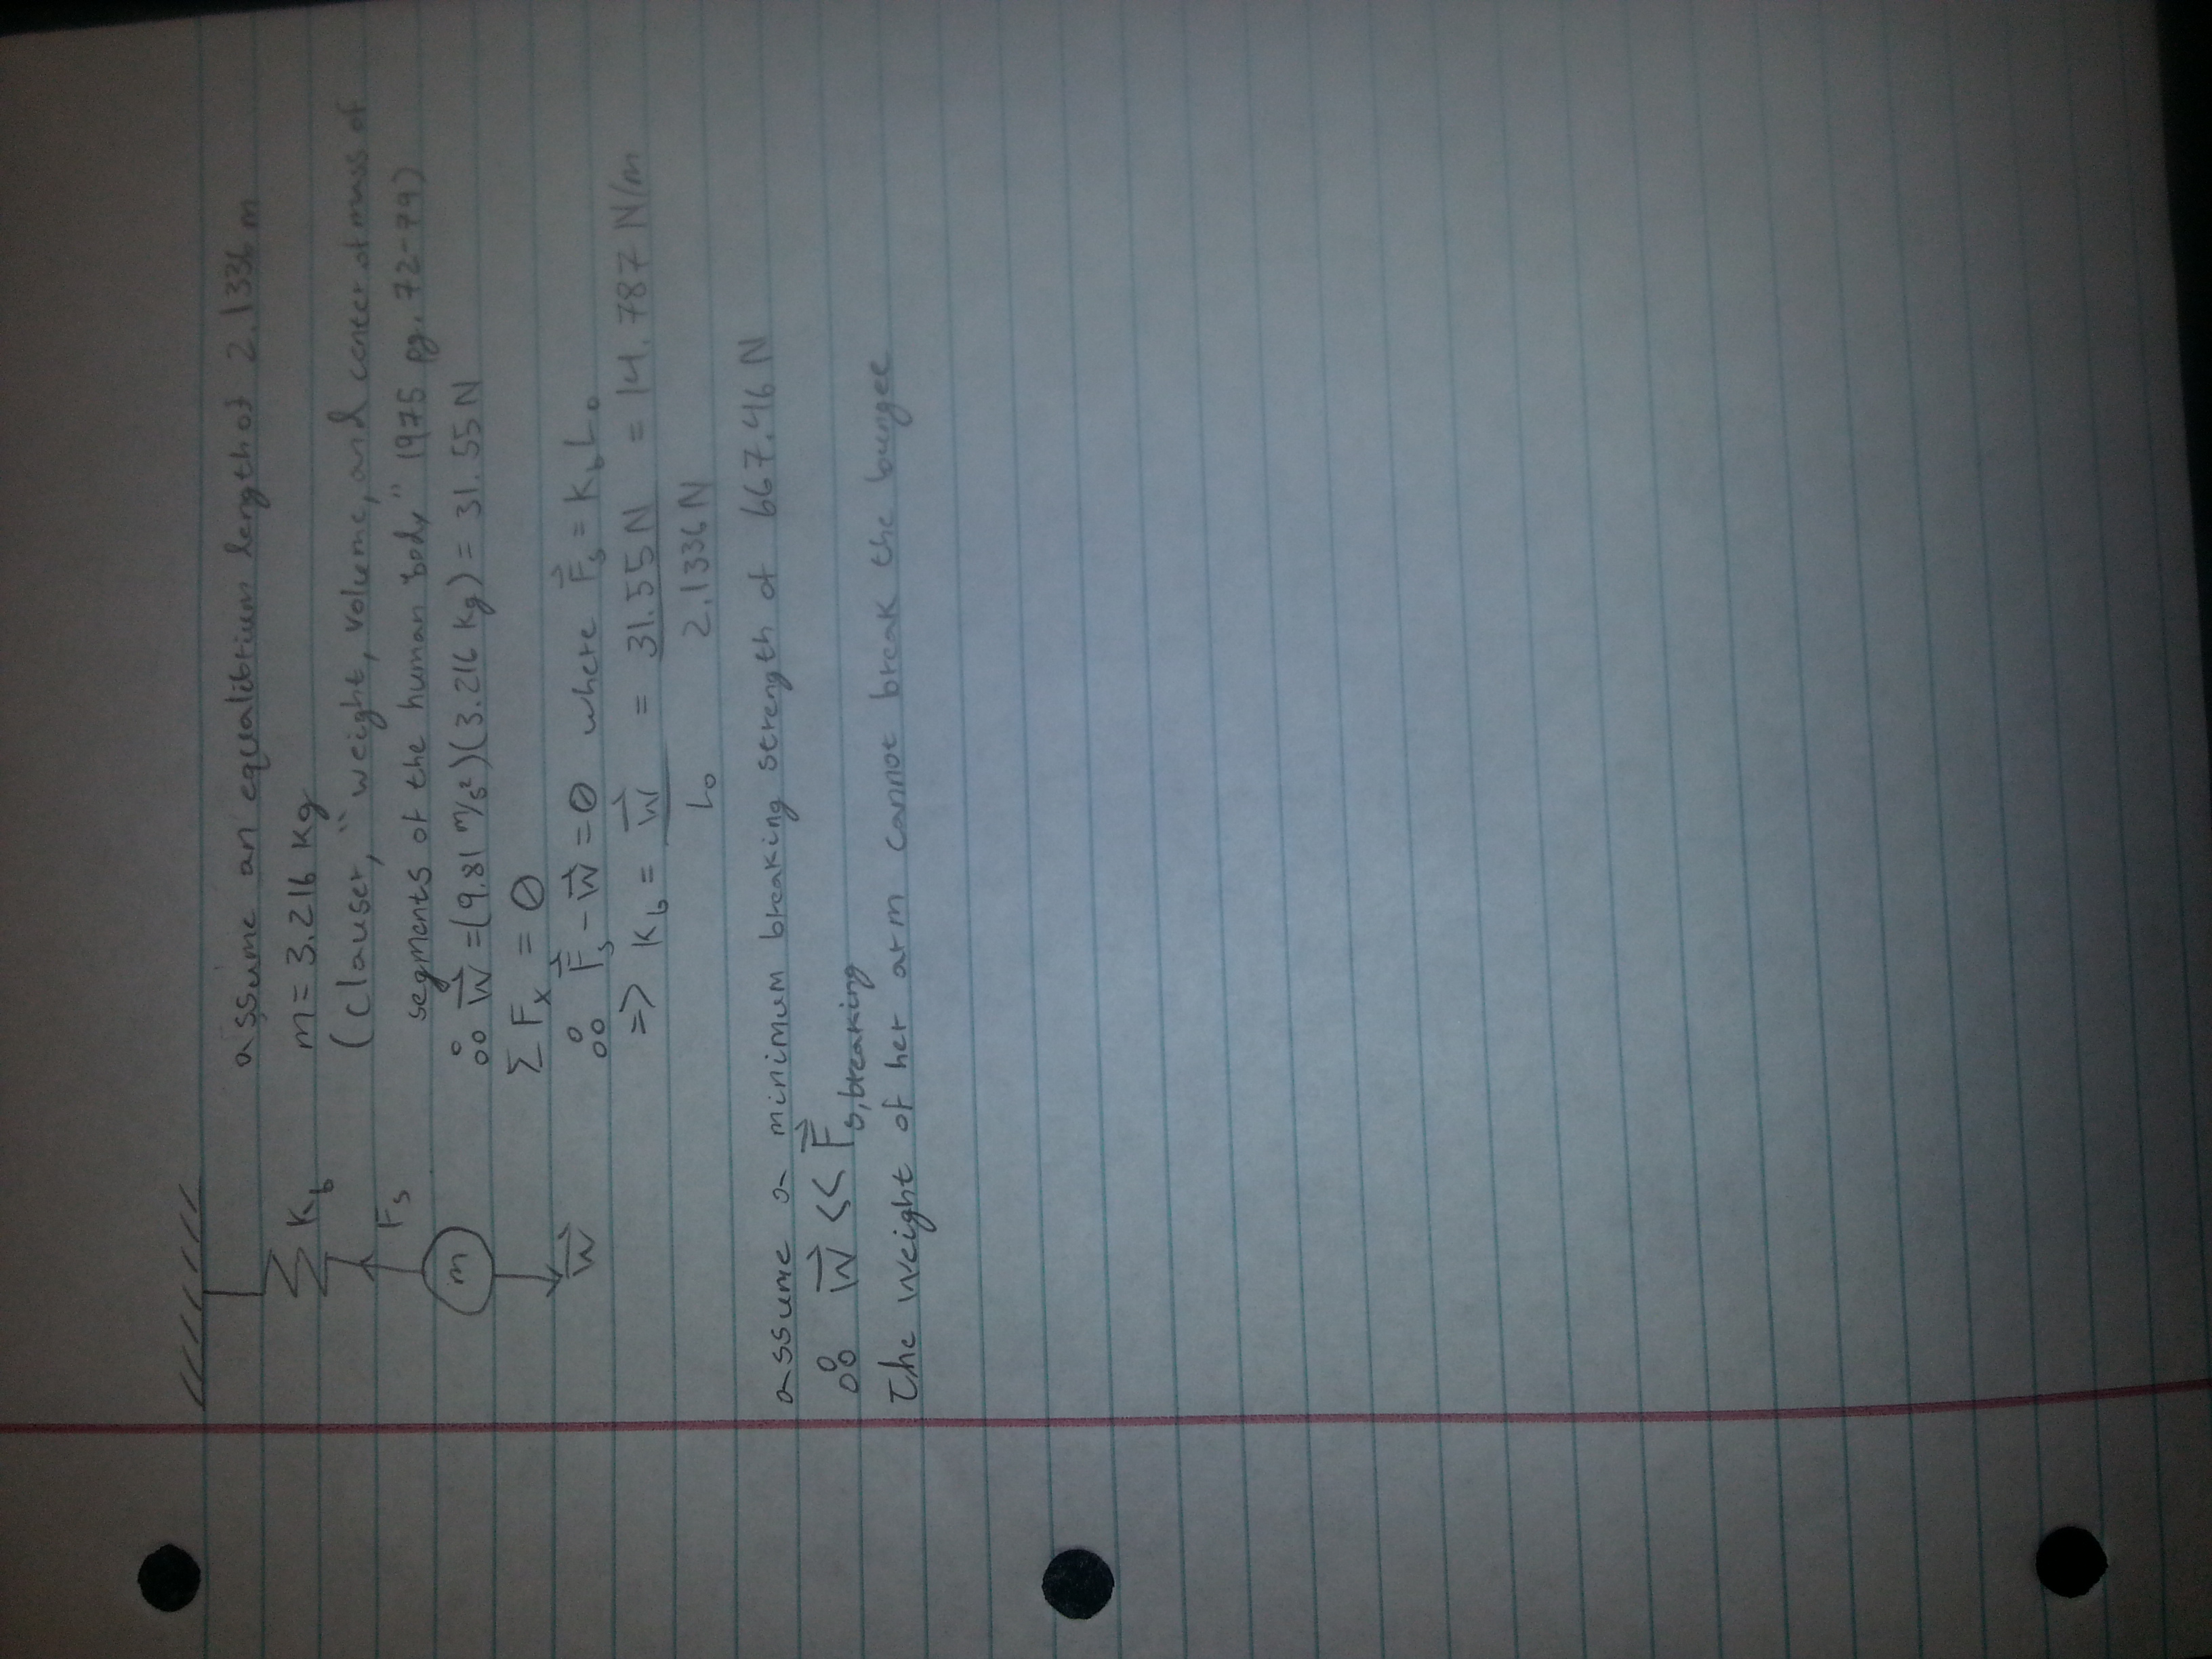 assume an equalibrium length of 2.1336 m
K_b
m = 3.216 kg
(Clauser, "weight, volume, and center of mass of
F_s
segments of the human body" 1975 pg. 72-79)
m
∴ W⃗ = (9.81 m/s²)(3.216 kg) = 31.55 N
Σ F_x = 0
W⃗
∴ F⃗_s - W⃗ = 0 where F⃗_s = K_b L_o
=> K_b = W⃗ / L_o = 31.55 N / 2.1336 N = 14.787 N/m
assume a minimum breaking strength of 667.46 N
∴ W⃗ << F⃗_s,breaking
The weight of her arm cannot break the bungee